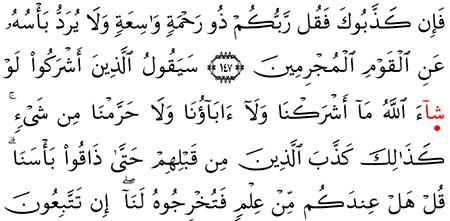 فَإِن كَذَّبُوكَ فَقُل رَّبُّكُمْ ذُو رَحْمَةٍ وَٰسِعَةٍ وَلَا يُرَدُّ بَأْسُهُۥ
عَنِ ٱلْقَوْمِ ٱلْمُجْرِمِينَ ١٤٧ سَيَقُولُ ٱلَّذِينَ أَشْرَكُوا۟ لَوْ
شَآءَ ٱللَّهُ مَآ أَشْرَكْنَا وَلَآ ءَابَآؤُنَا وَلَا حَرَّمْنَا مِن شَىْءٍ ۚ
كَذَٰلِكَ كَذَّبَ ٱلَّذِينَ مِن قَبْلِهِمْ حَتَّىٰ ذَاقُوا۟ بَأْسَنَا ۗ
قُلْ هَلْ عِندَكُم مِّنْ عِلْمٍ فَتُخْرِجُوهُ لَنَآ ۖ إِن تَتَّبِعُونَ